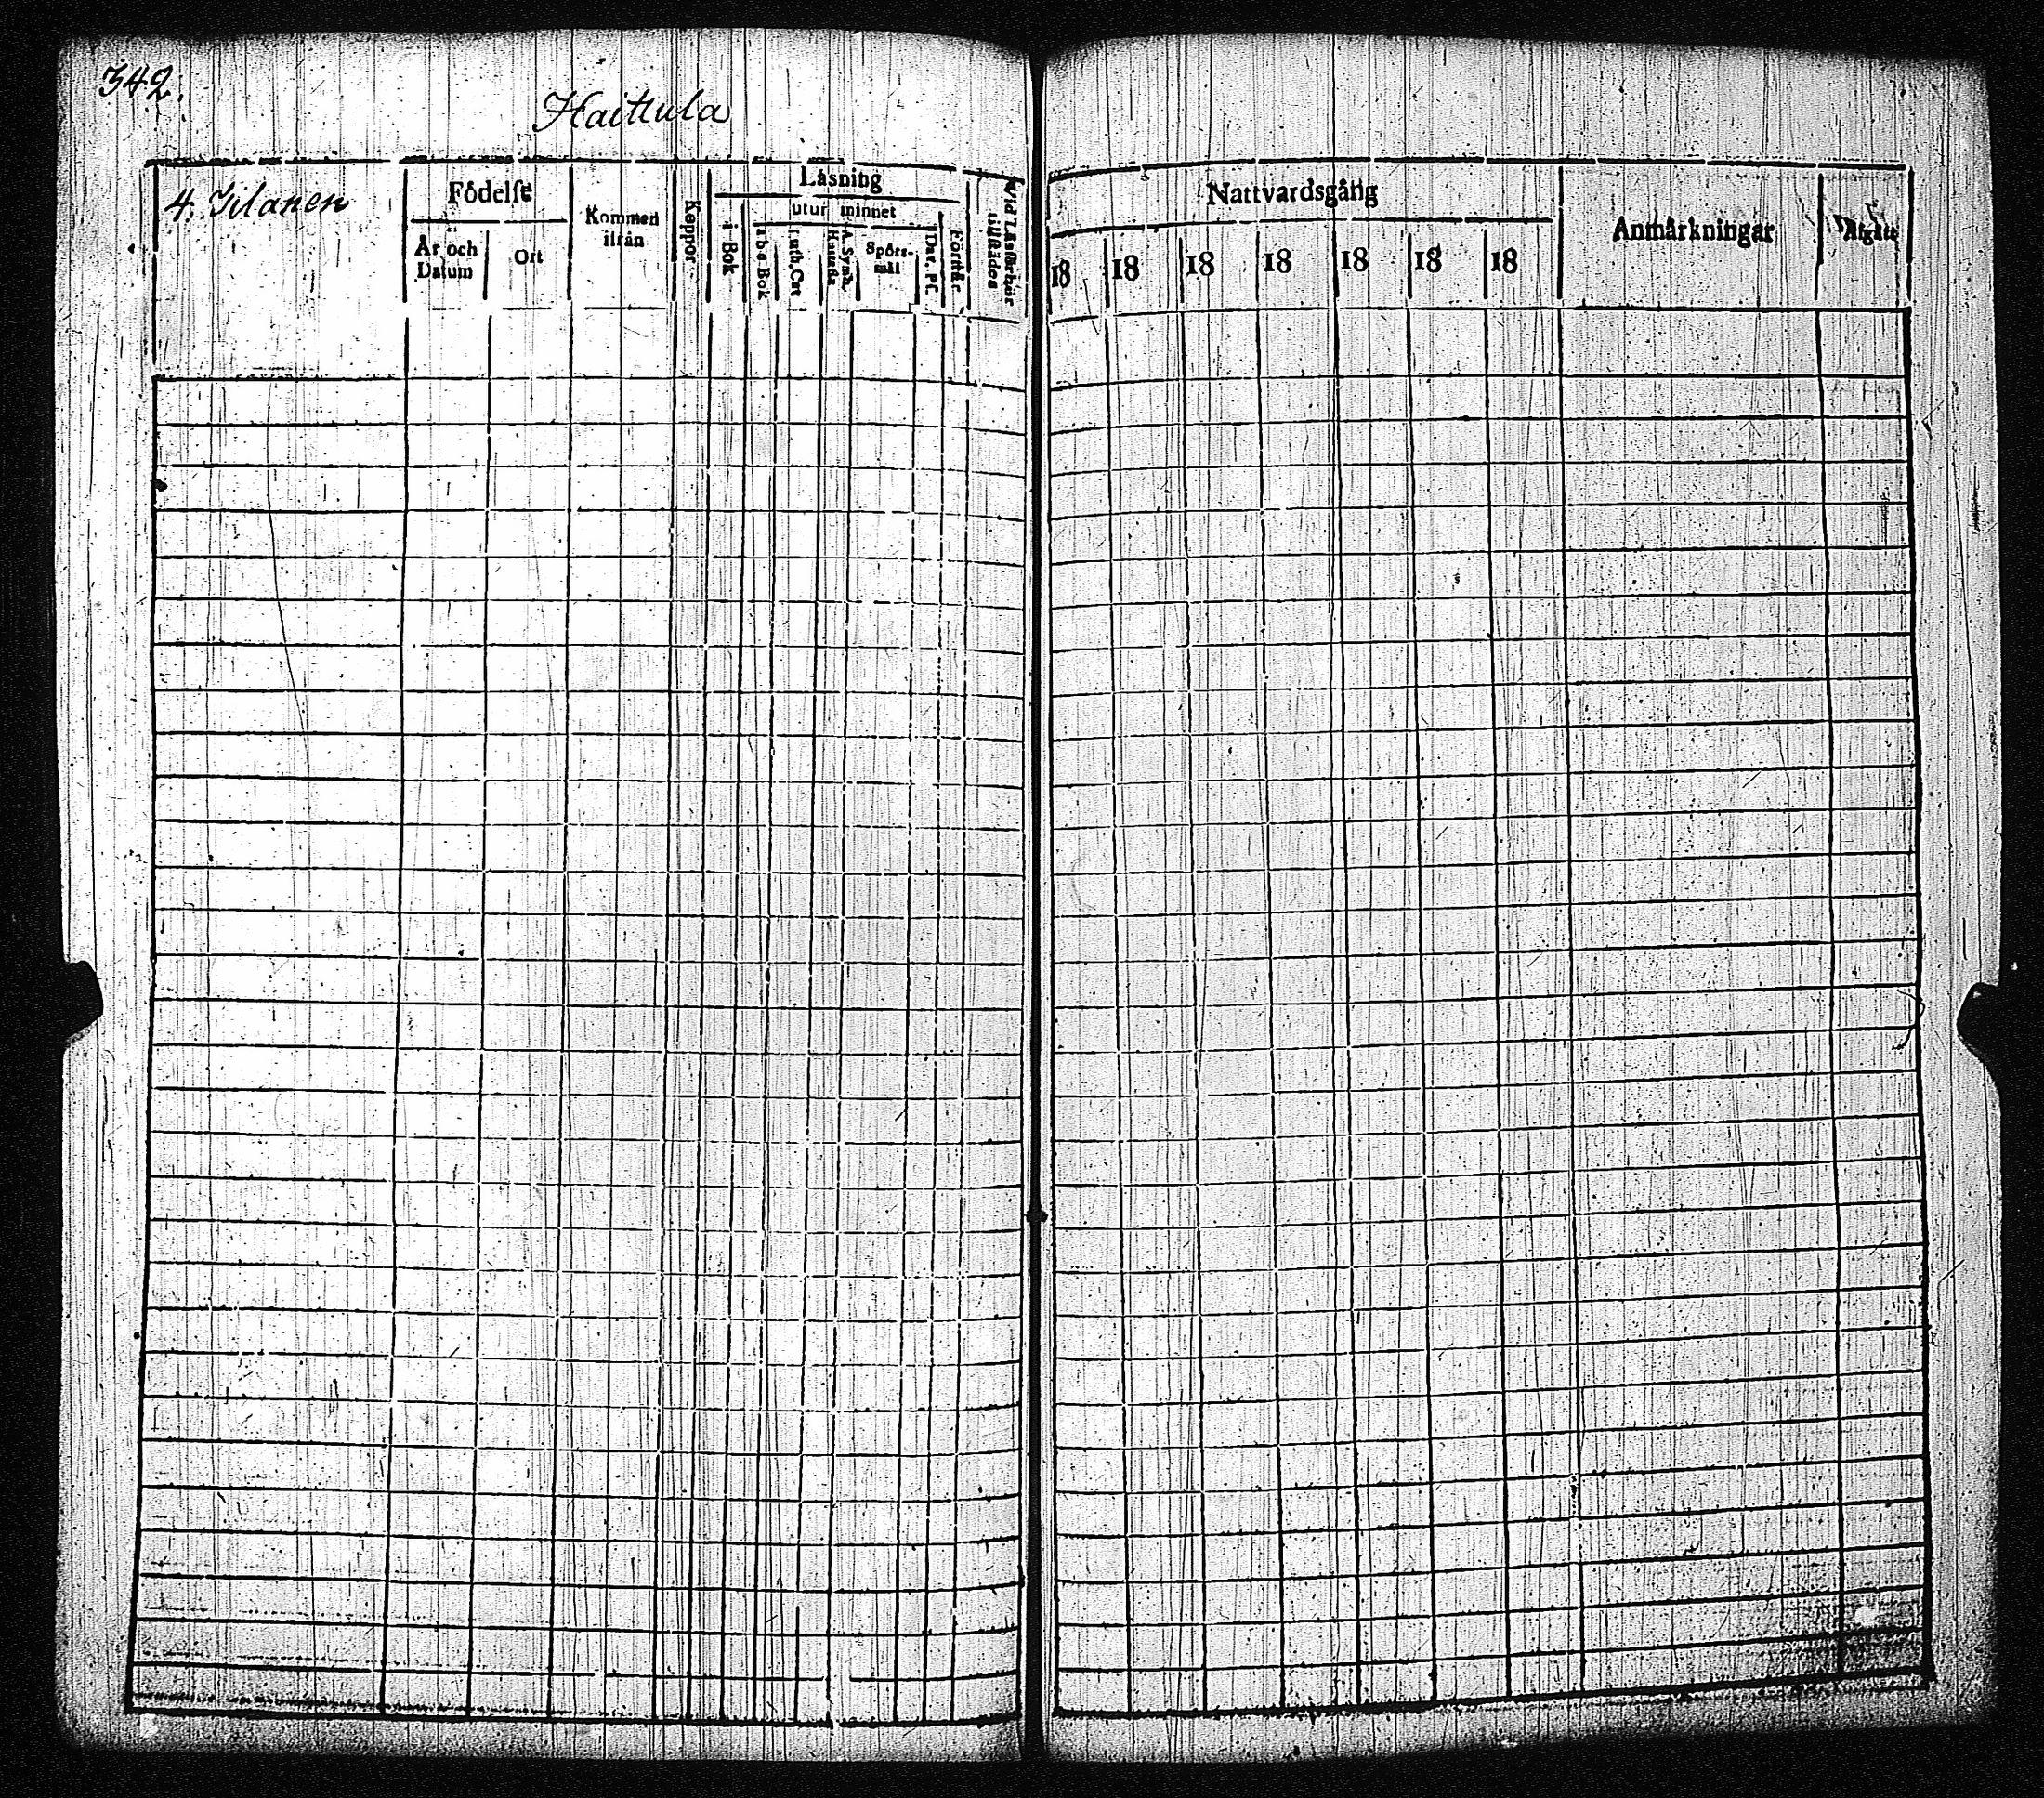 342.
Haittula
4. Iilanen
Födelse
År och
Datum
Ort
Kommen
ifrån
Koppor
Läsning
i Bok
utur minnet
a b c Bok
Luth. Cat
A. Symb.
Hustafl.
Spörs-
mål
Dav. Ps.
Förstår
Vid Läsförhör
tillstädes
Nattvardsgång
18 18 18 18 18 18 18
Anmärkningar